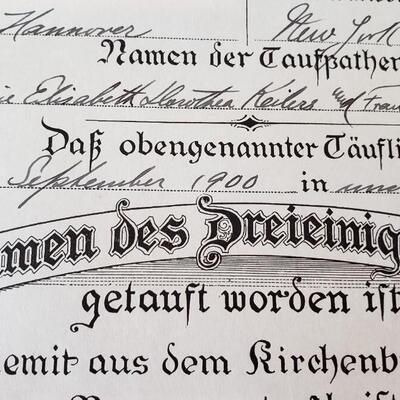 Hannover New York
Namen der Taufpathen
Elisabeth Dorothea Keilers und Frau
Daß obengenannter Täufli
September 1900 in
men des Dreieinig
getauft worden ist
emit aus dem Kirchenb